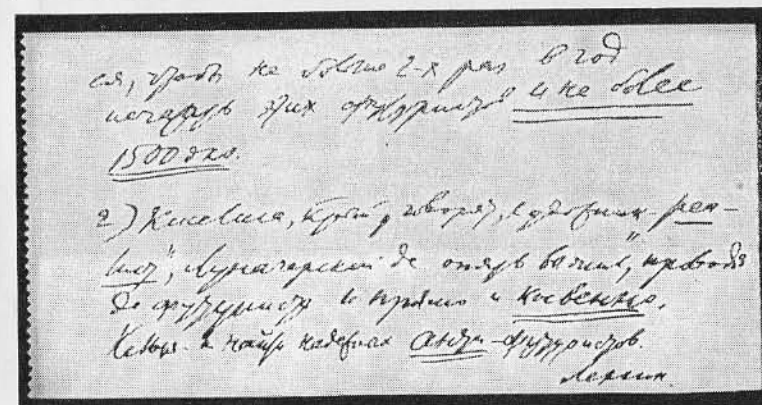 ся, чтобы не больше 2-х раз в год
печатать этих футуристов и не более
1500 экз.
2) Киселиса, к[ото]рый, говорят, художник-„реа-
лист“, Луначарский де опять выжил, проводя
де футуриста и прямо и косвенно.
Нельзя ли найти надежных анти-футуристов.
Ленин.